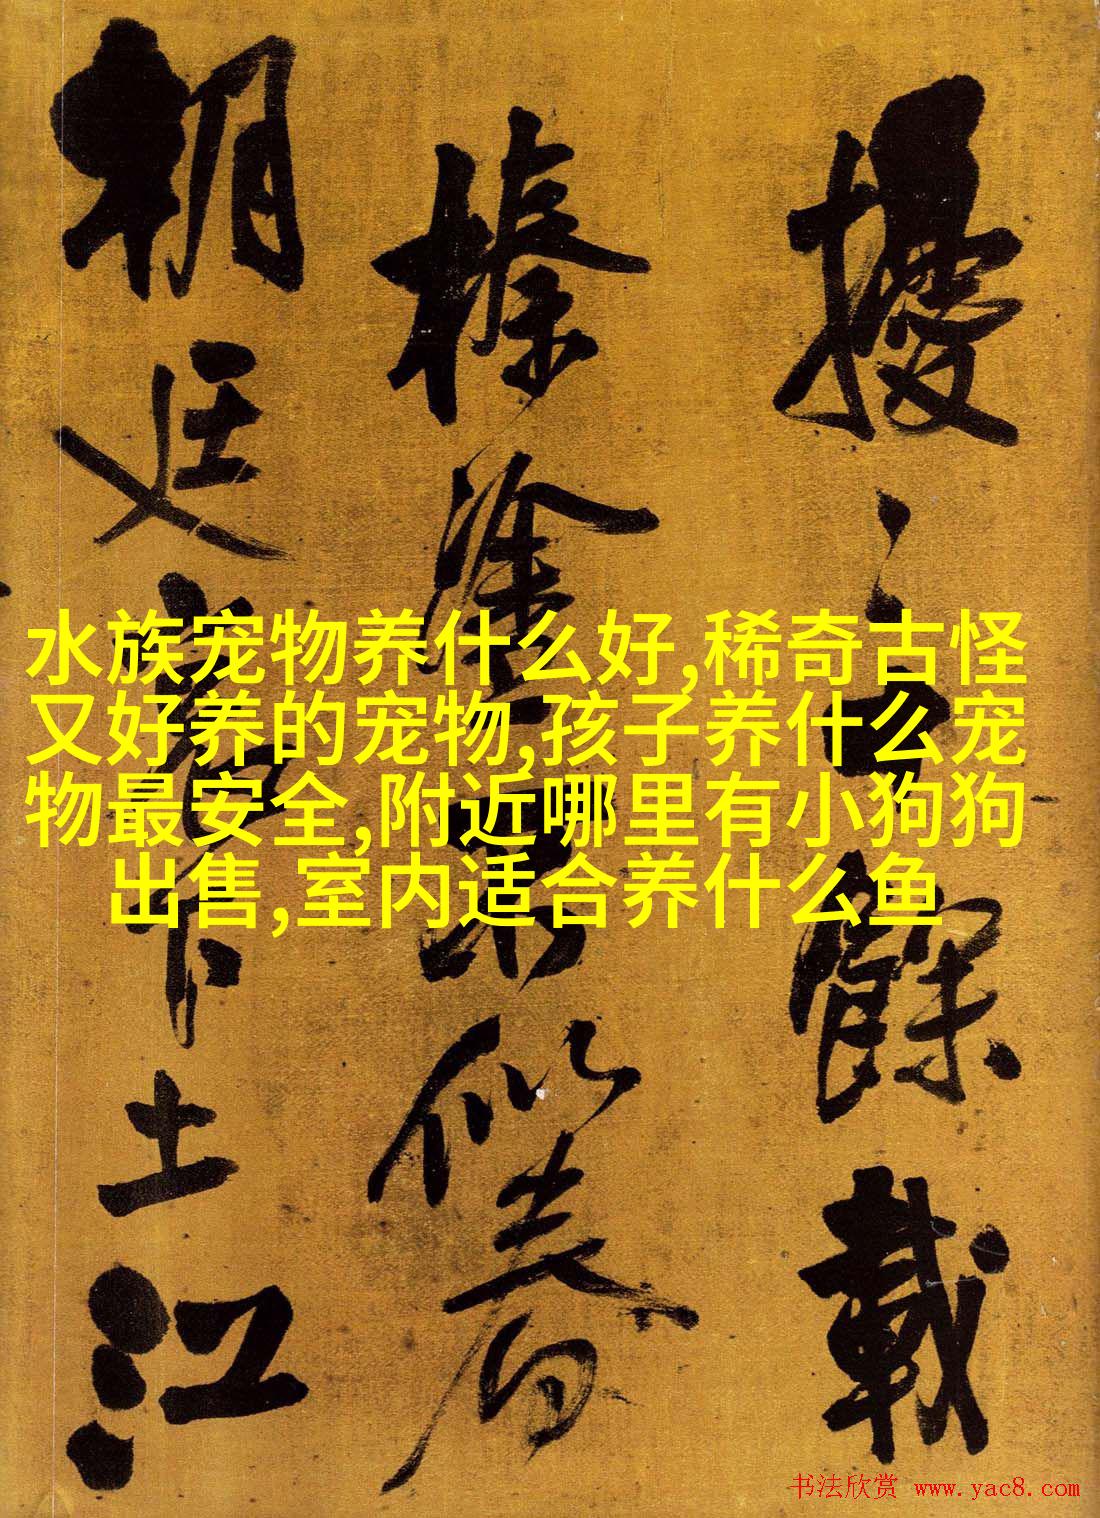 擾之餘載
榛塗
朝廷
土江
水族宠物养什么好,稀奇古怪
又好养的宠物,孩子养什么宠
物最安全,附近哪里有小狗狗
出售,室内适合养什么鱼
书法欣赏 www.yac8.com